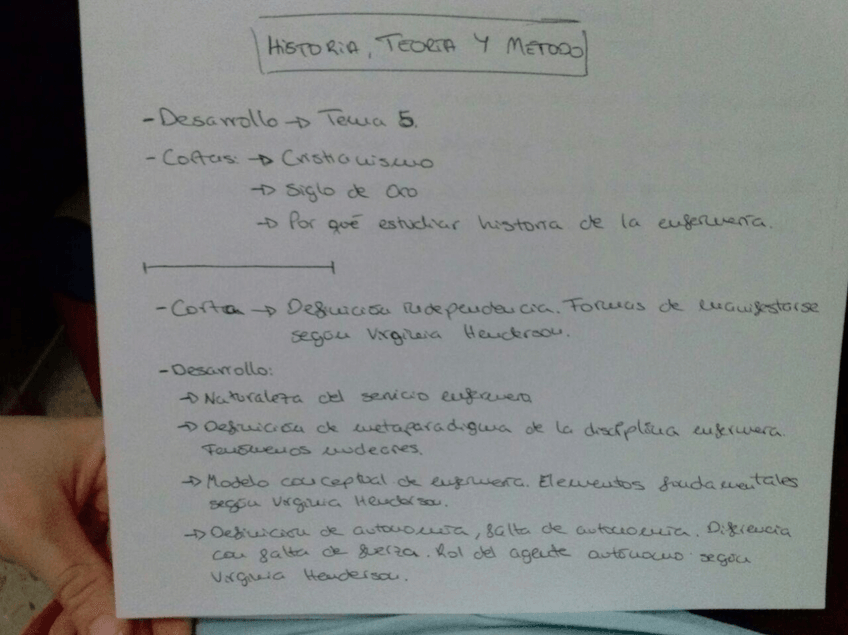 HISTORIA, TEORIA Y METODO
- Desarrollo → Tema 5.
- Cortas: → Cristianismo
→ Siglo de Oro
→ Por qué estudiar historia de la enfermería.
- Corta → Definición independencia. Formas de manifestarse
según Virginia Henderson.
- Desarrollo:
→ Naturaleza del servicio enfermero
→ Definición de metaparadigma de la disciplina enfermera.
Fenómenos nucleares.
→ Modelo conceptual de enfermera. Elementos fundamentales
según Virginia Henderson.
→ Definición de autonomía, falta de autonomía. Diferencia
con falta de fuerza. Rol del agente autónomo según
Virginia Henderson.